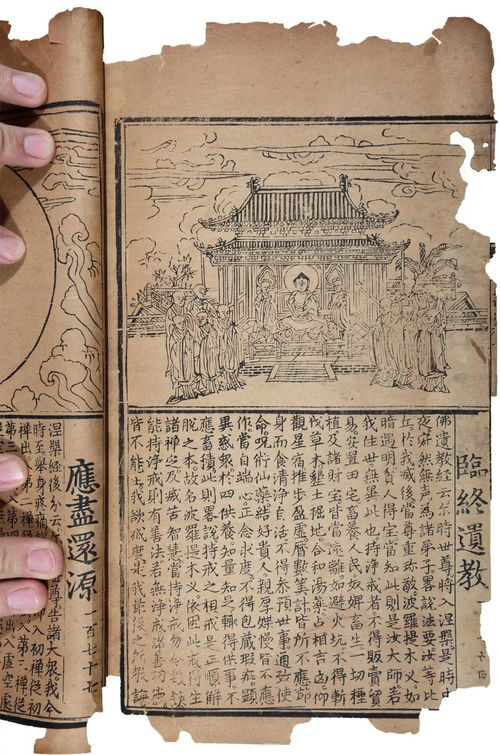 臨終遺教
佛遺教經云尒時世尊將入涅槃是時
夜寂然無声為諸弟子畧說法要汝等比
丘於我滅後當尊重珎敬波羅提木义如
暗遇明貧人得宝當知此則是汝大師若
我住世無異此也持浄戒者不得販賣貿
易安置田宅畜養人民奴婢畜生一切種
植及諸財宝皆當遠離如避火坑不得斬
伐草木墾土掘地合和湯藥占相吉凶仰
觀星宿推步盈虛曆數筭計皆所不應節
身而食清浄自活不得叅預世事通致使
命呪術仙藥結好貴人親厚媟慢皆不應
作當自端心正念求度不得包藏瑕疵顯
異惑衆於四供養知量知足輙得供事不
應畜積此則畧說持戒之相戒是正順解
脫之本故名波羅提木义依因此戒得生
諸禅定及滅苦智慧當持浄戒勿令毀
能持浄戒則有善法若無浄戒諸善功
皆不能生我欲滅度是我最後之所教誨
應盡還源
一百七十七
涅槃經後分云尒時世尊告諸大衆我今
時至舉身疼痛即入初禅從初
禅出第三禅從